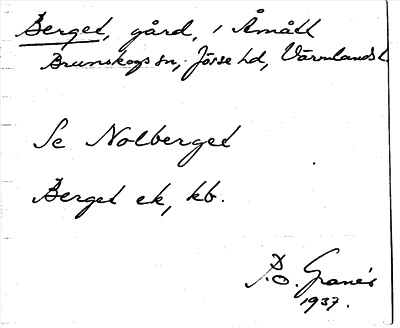 Berget, gård, i Åmått
Brunskogs sn, Jösse hd, Värmlands l
Se Nolberget
Berget ek, kb.
P. O. Granér
1937.